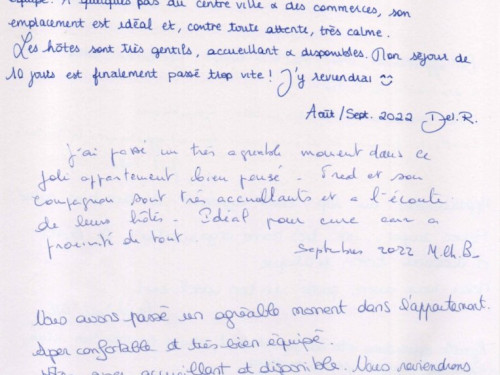 équipé. A quelques pas du centre ville & des commerces, son
emplacement est idéal et, contre toute attente, très calme.
Les hôtes sont très gentils, accueillant & disponibles. Mon séjour de
10 jours est finalement passé trop vite ! J'y reviendrai
Août/Sept. 2022 Del.R.
J'ai passé un très agréable moment dans ce
joli appartement bien pensé - Fred et son
Compagnon sont très accueillants et a l'écoute
de leurs hôtes - Idéal pour cure car a
proximité de tout
Septembre 2022 M.Ch.B-
Nous avons passé un agréable moment dans l'appartement.
confortable et très bien équipé.
accueillant et disponible. Nous reviendrons